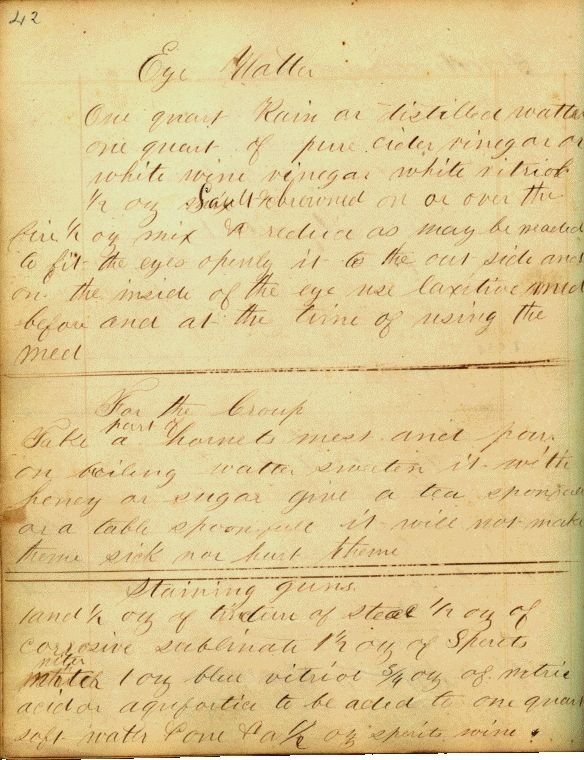 42
Eye Watter
One quart Rain or distilled watter
one quart of pure cider vinegar or
white wine vinegar white vitriol
½ oz Sault & browned on or over the
fire ½ oz mix & reduce as may be needed
to fit the eyes openly it to the out side and
on the inside of the eye use laxitive med
before and at the time of using the
med
For the Croup
part of
Take a hornets nest and pour
on boiling watter sweeten it with
honey or sugar give a tea spoonfull
or a table spoonfull it will not make
theme sick nor hurt theme
Staining guns
1 and ½ oz of tincture of steel ½ oz of
corrosive sublimate 1½ oz of Spirits
niter
1 oz blue vitriol ¾ oz of nitric
acid or aquafortis to be aded to one quart
soft watter & one & a ½ oz spirits wine